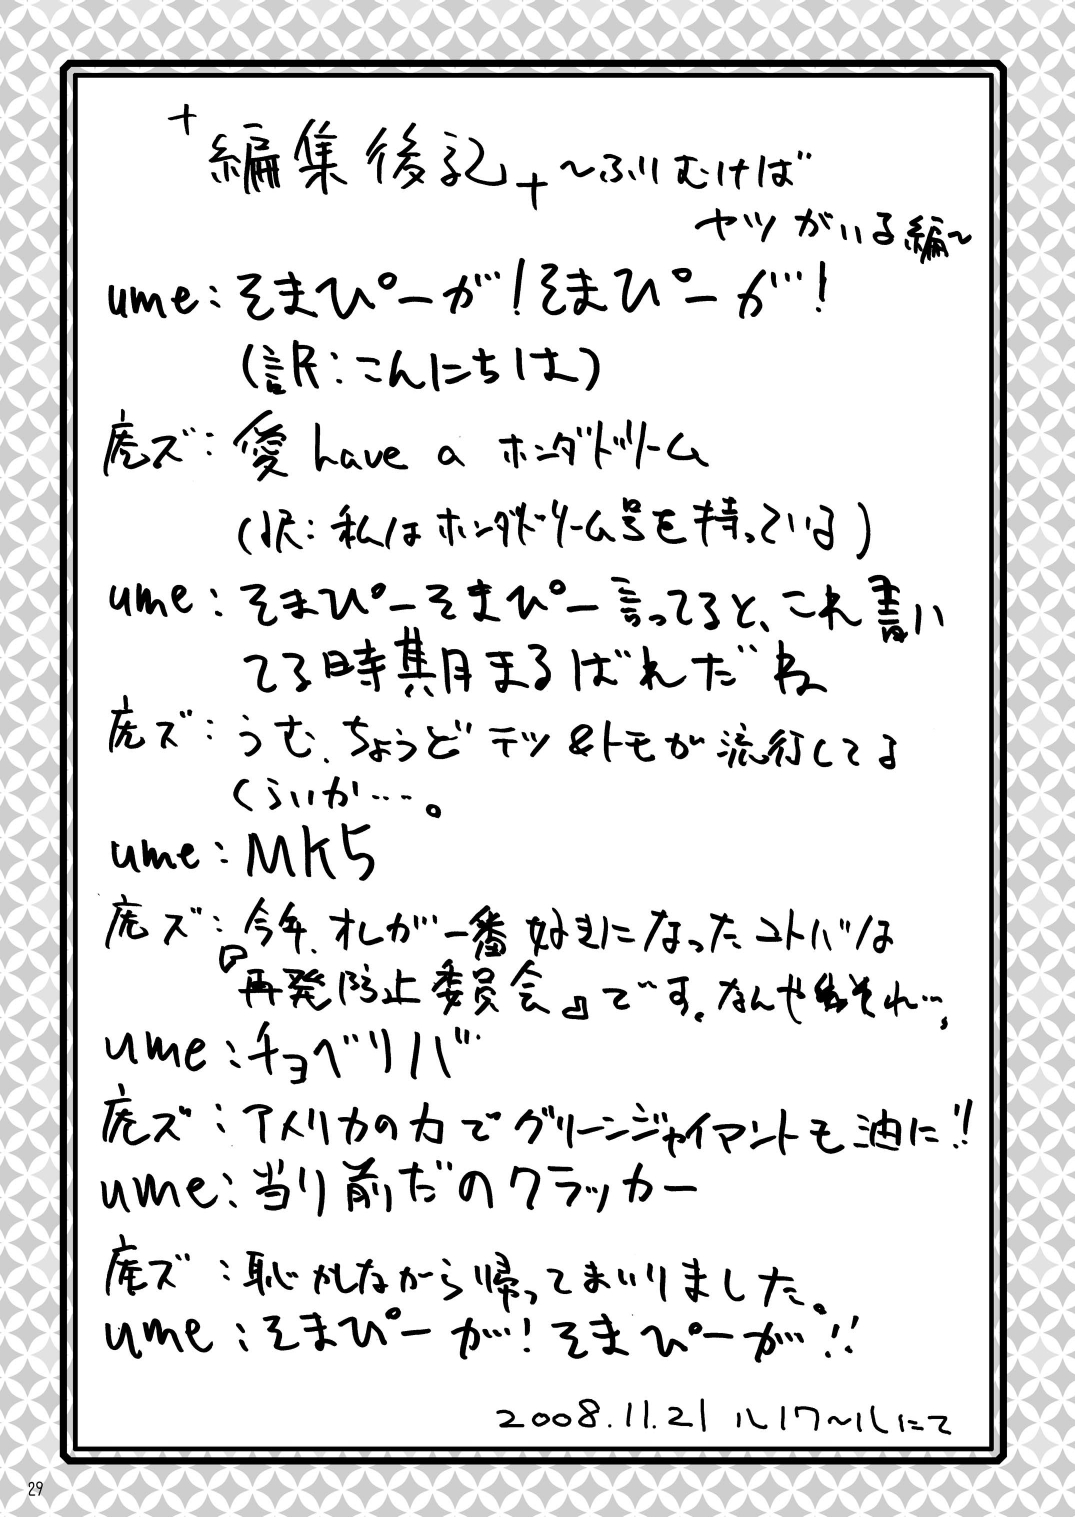 +編集後記+ ～ふりむけば
ヤツがいる編～
ume:そまぴーが!そまぴーが!
(訳:こんにちは)
虎ズ:愛 have a ホンダドリーム
(訳:私はホンダドリーム号を持っている)
ume:そまぴーそまぴー言ってると、これ書い
てる時期まるばれだね
虎ズ:うむ、ちょうどテツ&トモが流行してる
くらいか…。
ume:MK5
虎ズ:今年、オレが一番好きになったコトバは
『再発防止委員会』です。なんや それ…。
ume:チョベリバ
虎ズ:アメリカの力でグリーンジャイアントも油に!!
ume:当り前だのクラッカー
虎ズ:恥かしながら帰ってまいりました。
ume:そまぴーが!そまぴーが!!
2008.11.21 ルノワ～ルにて
29